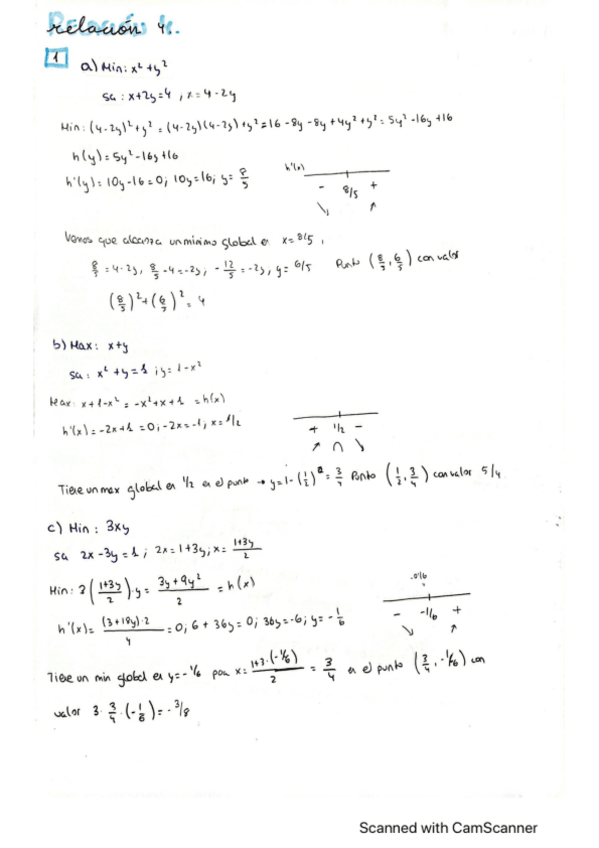 relación 4.
1 a) Min: x² + y²
sa: x+2y=4 , x=4-2y
Min: (4-2y)² + y² = (4-2y)(4-2y) + y² = 16 - 8y - 8y + 4y² + y² = 5y² - 16y + 16
h(y) = 5y² - 16y + 16
h'(y) = 10y - 16 = 0; 10y = 16; y = 8/5
h'(x)
- 8/5 +
↘ ↗
Vemos que alcanza un mínimo global en x = 8/5,
8/5 = 4-2y, 8/5 - 4 = -2y, -12/5 = -2y, y = 6/5 Punto (8/5, 6/5) con valor
(8/5)² + (6/5)² = 4
b) Max: x+y
sa: x² + y = 1 ; y = 1-x²
Max: x+1-x² = -x²+x+1 = h(x)
h'(x) = -2x+1 = 0; -2x = -1; x = 1/2
+ 1/2 -
↗ ∩ ↘
Tiene un max global en 1/2 en el punto → y = 1-(1/2)² = 3/4 Punto (1/2, 3/4) con valor 5/4
c) Min: 3xy
sa 2x-3y=1 ; 2x=1+3y; x = 1+3y/2
Min: 3(1+3y/2)·y = 3y+9y²/2 = h(x)
h'(x) = (3+18y)·2/4 = 0; 6+36y = 0; 36y = -6; y = -1/6
- -1/6 +
↘ ↗
Tiene un min global en y = -1/6 para x = 1+3·(-1/6)/2 = 3/4 en el punto (3/4, -1/6) con
valor 3·3/4·(-1/6) = -3/8
Scanned with CamScanner